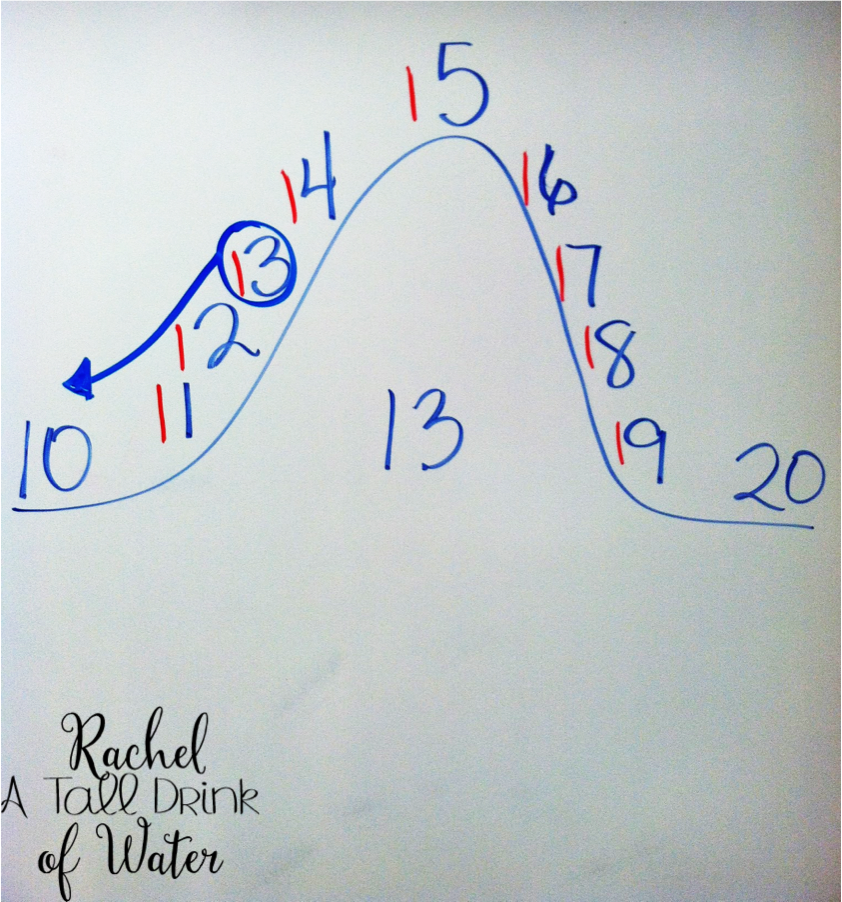 15
14
16
13
17
12
18
11
13
19
10
20
Rachel
A Tall Drink
of Water